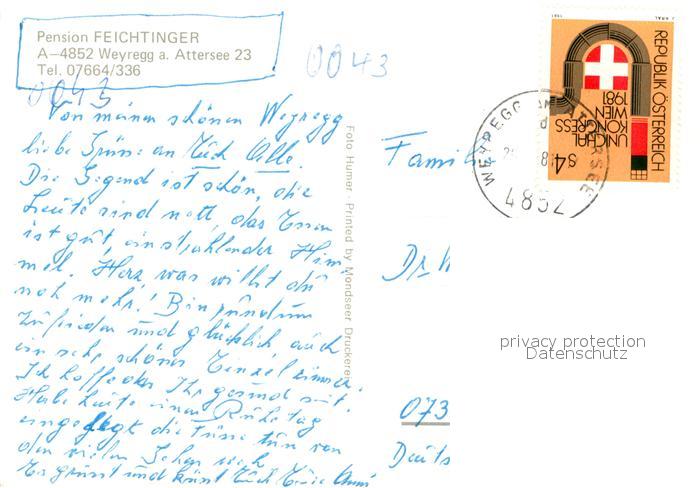 Pension FEICHTINGER
A-4852 Weyregg a. Attersee 23
Tel. 07664/336
0043
0043
Von meinem schönen Weyregg
liebe Grüsse an Euch Alle.
Die Gegend ist schön, die
Leute sind nett, das Essen
ist gut, ein strahlender Him-
mel. Herz was willst du
noch mehr! Bin rundum
zufrieden und glücklich auch
ein sehr schönes Einzelzimmer.
Ich hoffe Ihr gesund seit.
Habe heute einen Ruhetag
eingelegt die Füsse tun von
den vielen Gehen weh
Es grüsst und küsst Euch Eure Anni
Foto Humer · Printed by Mondseer Druckerei
Famili
Dr. W
073
Deuts
REPUBLIK ÖSTERREICH
UNICHAL
KONGRESS
WIEN
1981
S4
1981
J. KRAL
WEYREGG AM ATTERSEE
4852
privacy protection
Datenschutz